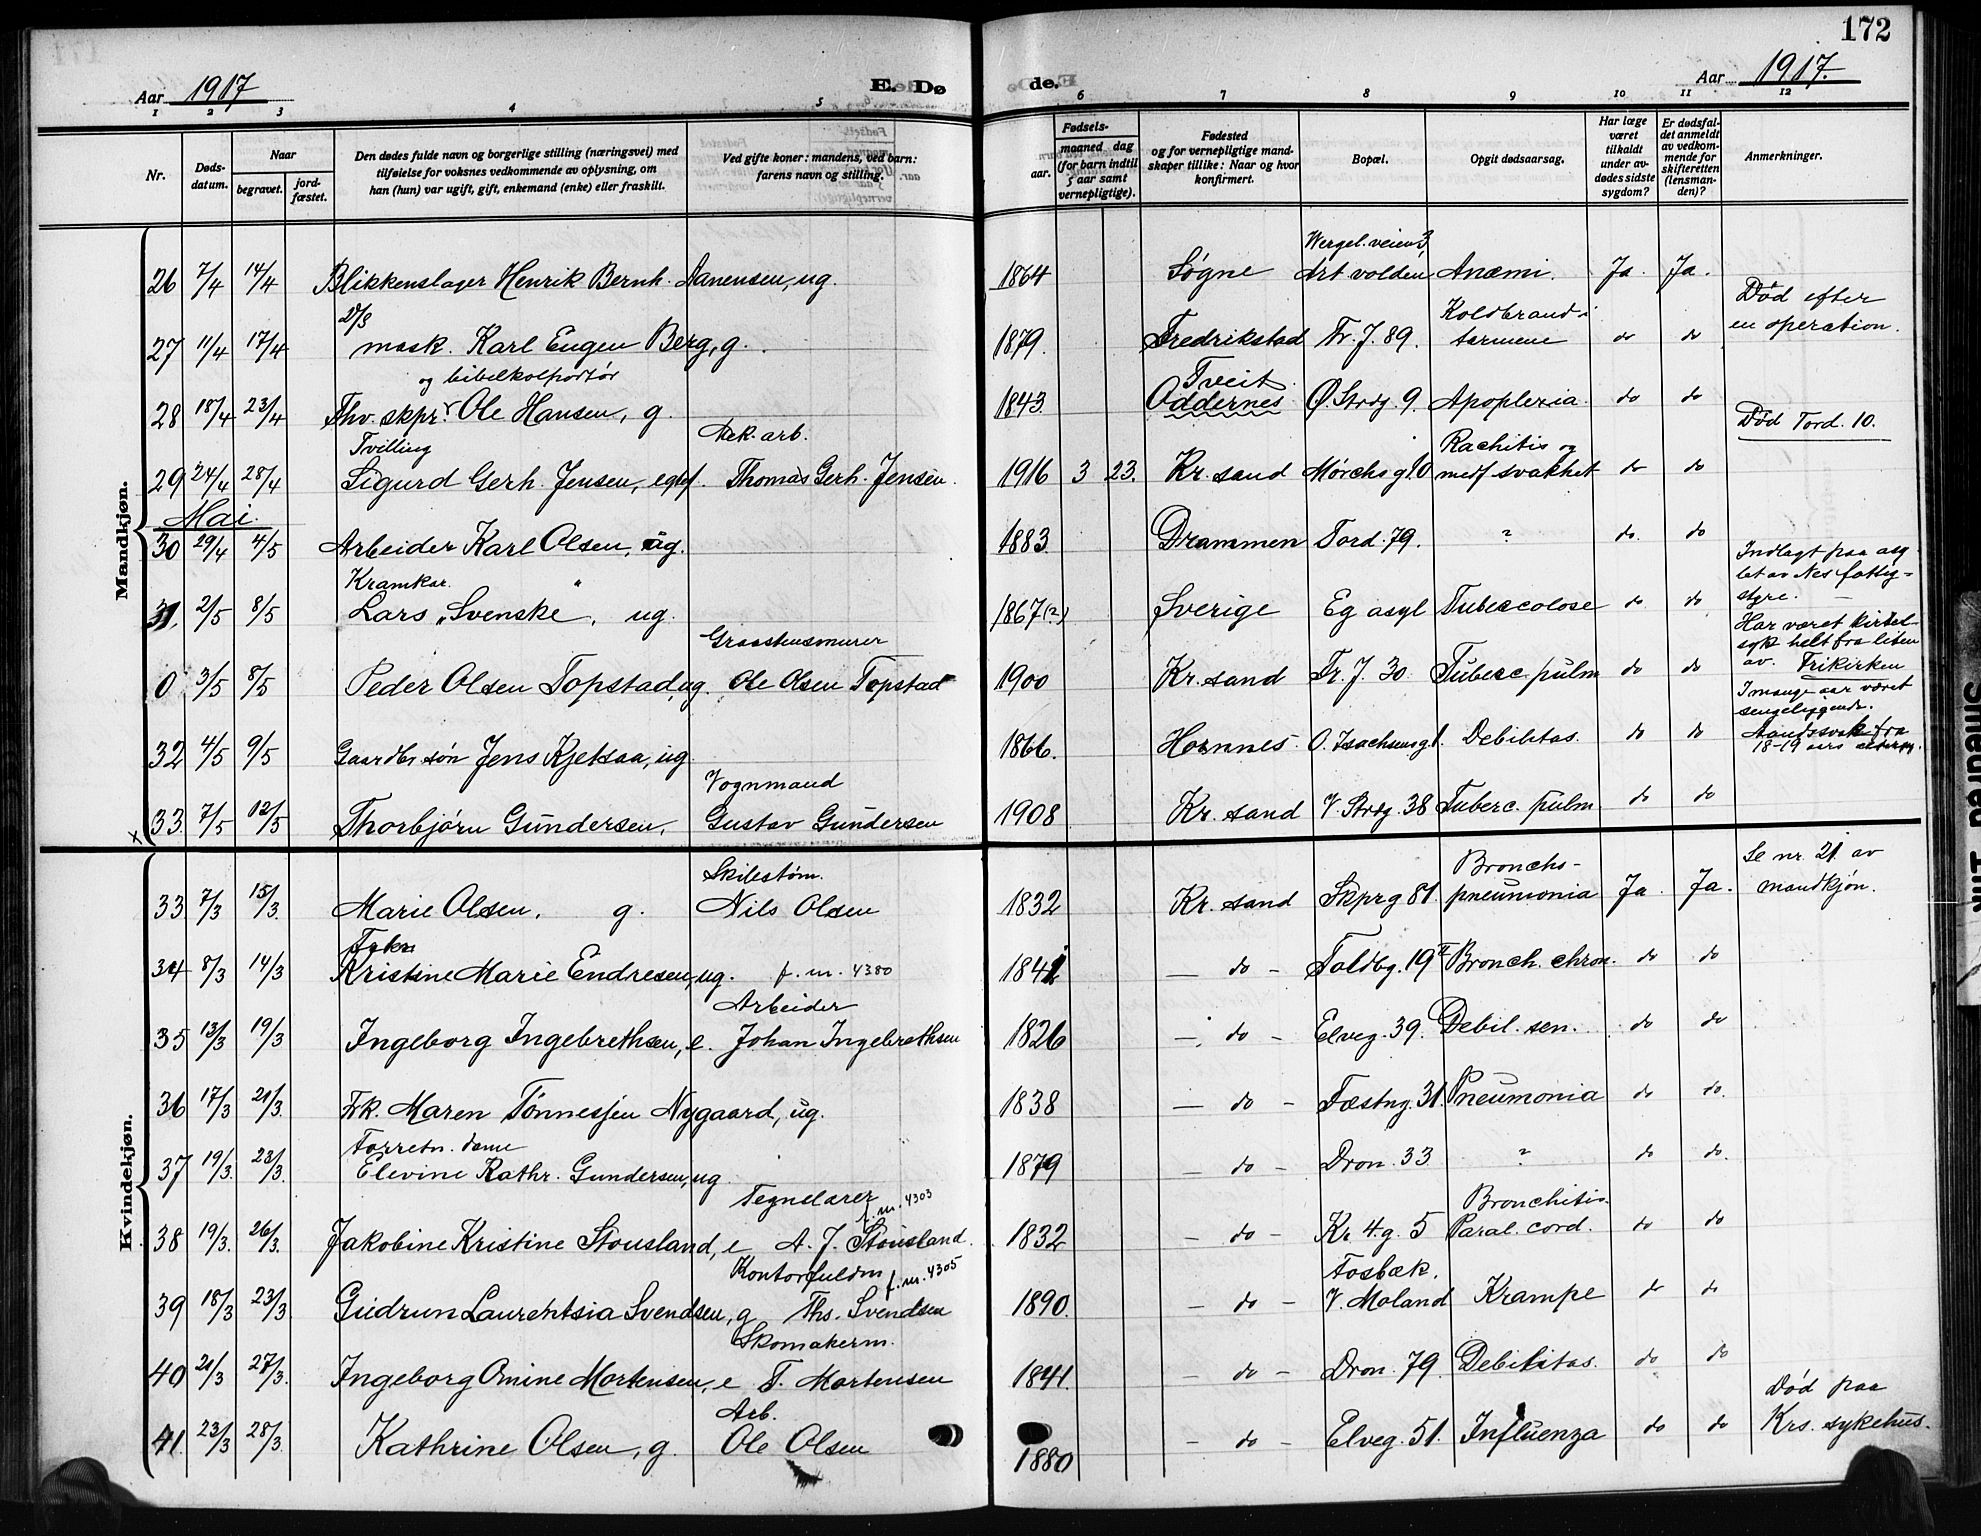 172
Aar 1917 E. Dø de. Aar 1917.
1 2 3 4 5 6 7 8 9 10 11 12
Nr. Døds-datum. Naar begravet. jord-fæstet. Den dødes fulde navn og borgerlige stilling (næringsvei) med tilføielse for voksnes vedkommende av oplysning, om han (hun) var ugift, gift, enkemand (enke) eller fraskilt. Ved gifte koner: mandens, ved barn: farens navn og stilling. Fødsels- aar. maaned dag (for barn indtil 5 aar samt vernepligtige). Fødested og for vernepligtige mand-skaper tillike: Naar og hvor konfirmert. Bopæl. Opgit dødsaarsag. Har læge været tilkaldt under av-dødes sidste sygdom? Er dødsfal-det anmeldt av vedkom-mende for skifteretten (lensman-den)? Anmerkninger.
Mandkjøn.
Wergel. veien 3
26 7/4 14/4 Blikkenslager Henrik Bernh. Aanensen, ug. 1864 Søgne Art volden Anæmi. Ja. Ja.
D/S Koldbrand i Død efter
27 11/4 17/4 mask. Karl Eugen Berg, g. 1879. Fredrikstad Tr. J. 89. tarmene do do en operation.
og bibelkolportør Tveit
28 18/4 23/4 Thv. skpr. Ole Hansen, g. 1843. Oddernes Ø. Strdg. 9. Apoplexia. do do
Tvilling Mek. arb. Rachitis og Død Tord. 10.
29 24/4 28/4 Sigurd Gerh. Jensen, egtef. Thomas Gerh. Jensen. 1916 3 23. Kr. sand Mørchs g 10 medf svakhet do do
Mai.
30 29/4 4/5 Arbeider Karl Olsen, ug. 1883 Drammen Tord. 79. ? do. do
Kramkar. Indlagt paa asy-
let av Nes fattig-
31. 2/5 8/5 Lars „Svenske“, ug. 1867(?) Sverige Eg asyl Tuberculose do do styre.
Graastensmurer Har været kirtel-
syk helt fra liten
0 3/5 8/5 Peder Olsen Topstad, ug. Ole Olsen Topstad 1900 Kr. sand Tr. J. 30 Tuberc. pulm do do av. Frikirken
I mange aar været
sengeliggende.
32 4/5 9/5 Gaardbr. søn Jens Kjetsaa, ug. 1866. Hornnes. O. Isachsens g 1. Debilitas. do do Aandssvak fra
18-19 aars
Vognmand
x 33. 7/5 12/5 Thorbjørn Gundersen, Gustav Gundersen 1908 Kr. sand V. Strdg. 38 Tuberc. pulm do do
Kvindekjøn.
Skibstøm. Broncho- Se nr. 21 av
33 7/3 15/3. Marie Olsen, g. Nils Olsen 1832 Kr. sand Skprg 81. pneumonia Ja. Ja. mandkjøn.
Frkn
34 8/3 14/3 Kristine Marie Endresen, ug. f. m. 4380 1841 — do — Toldbg. 19 II Bronch. chron. do do
Arbeider
35 13/3 19/3 Ingeborg Ingebrethsen, e. Johan Ingebrethsen 1826 — do — Elveg. 39. Debil. sen. do do
36 17/3 21/3. Frk. Maren Tønnesjen Nygaard, ug. 1838 — do — Fæstng. 31. Pneumonia do do.
Forretn. dame
37 19/3. 23/3. Elevine Kathr. Gundersen, ug 1879 — do — Dron. 33 ? do do.
Tegnelærer f. m. 4303 Bronchitis.
38 19/3. 26/3. Jakobine Kristine Stousland, e A. J. Stousland. 1832 — do — Kr. 4. g. 5 Paral. cord. do do
Kontorfuldm f. m. 4305 Fosbæk.
39 18/3 23/3. Gudrun Laurentsia Svendsen, g Ths. Svendsen 1890. — do — V. Moland Krampe do do
Skomakerm.
40 21/3 27/3. Ingeborg Omine Mortensen, e T. Mortensen 1841. — do — Dron. 79. Debilitas. do do
Arb. Død paa
41. 23/3 28/3. Kathrine Olsen, g. Ole Olsen 1880 — do — Elveg. 51. Influenza do do Krs. sykehus.